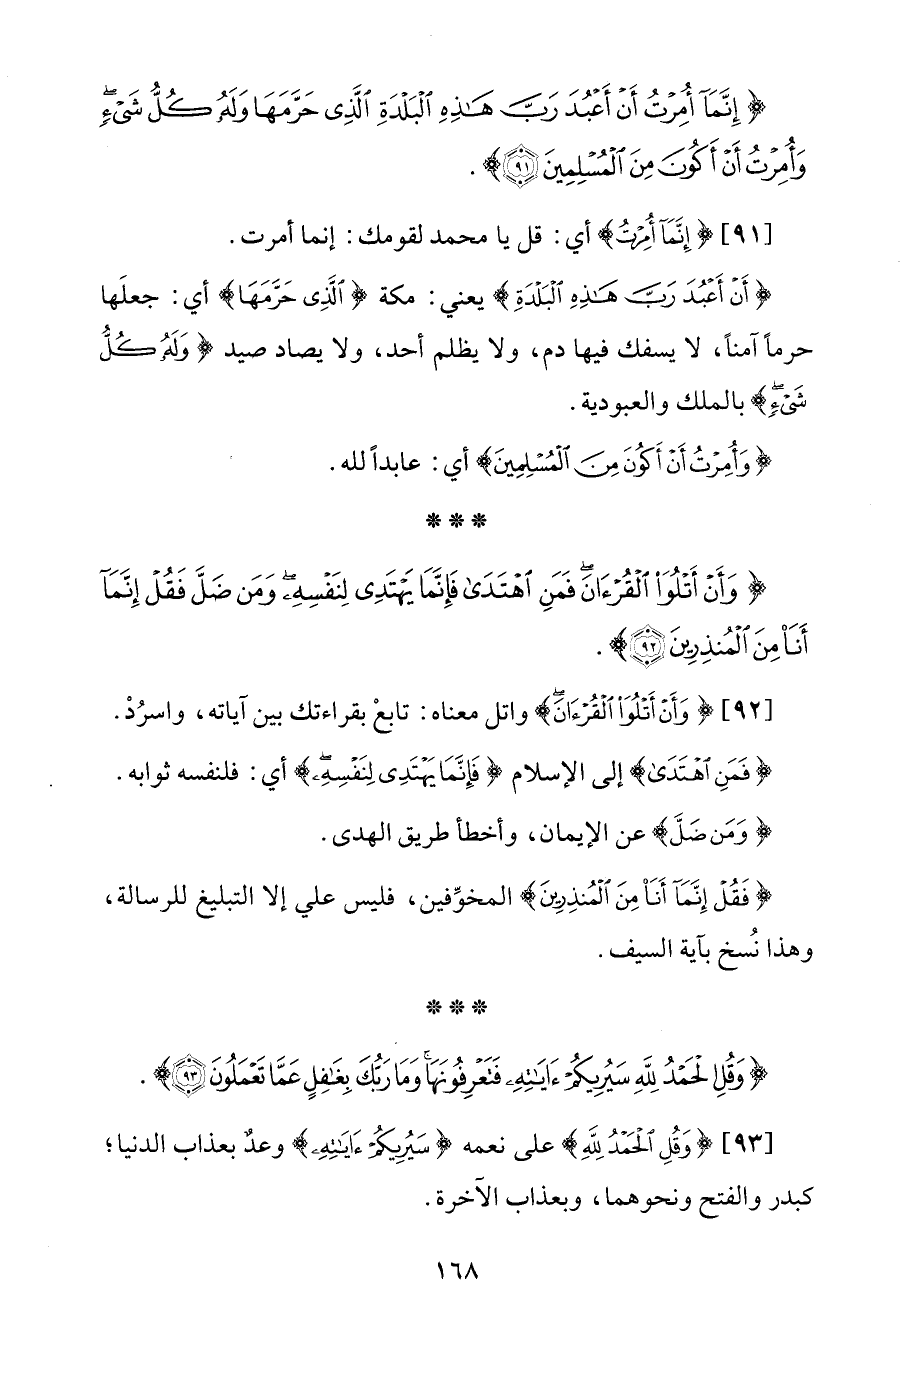 ﴿ إِنَّمَآ أُمِرْتُ أَنْ أَعْبُدَ رَبَّ هَٰذِهِ ٱلْبَلْدَةِ ٱلَّذِى حَرَّمَهَا وَلَهُۥ كُلُّ شَىْءٍۖ
وَأُمِرْتُ أَنْ أَكُونَ مِنَ ٱلْمُسْلِمِينَ ۝٩١ ﴾ .
[٩١] ﴿ إِنَّمَآ أُمِرْتُ ﴾ أي : قل يا محمد لقومك : إنما أمرت .
﴿ أَنْ أَعْبُدَ رَبَّ هَٰذِهِ ٱلْبَلْدَةِ ﴾ يعني : مكة ﴿ ٱلَّذِى حَرَّمَهَا ﴾ أي : جعلَها
حرماً آمناً، لا يسفك فيها دم، ولا يظلم أحد، ولا يصاد صيد ﴿ وَلَهُۥ كُلُّ
شَىْءٍۖ ﴾ بالملك والعبودية .
﴿ وَأُمِرْتُ أَنْ أَكُونَ مِنَ ٱلْمُسْلِمِينَ ﴾ أي : عابداً لله .
* * *
﴿ وَأَنْ أَتْلُوَا۟ ٱلْقُرْءَانَۖ فَمَنِ ٱهْتَدَىٰ فَإِنَّمَا يَهْتَدِى لِنَفْسِهِۦۖ وَمَن ضَلَّ فَقُلْ إِنَّمَآ
أَنَا۠ مِنَ ٱلْمُنذِرِينَ ۝٩٢ ﴾ .
[٩٢] ﴿ وَأَنْ أَتْلُوَا۟ ٱلْقُرْءَانَۖ ﴾ واتل معناه : تابعْ بقراءتك بين آياته، واسرُدْ .
﴿ فَمَنِ ٱهْتَدَىٰ ﴾ إلى الإسلام ﴿ فَإِنَّمَا يَهْتَدِى لِنَفْسِهِۦۖ ﴾ أي : فلنفسه ثوابه .
﴿ وَمَن ضَلَّ ﴾ عن الإيمان، وأخطأ طريق الهدى .
﴿ فَقُلْ إِنَّمَآ أَنَا۠ مِنَ ٱلْمُنذِرِينَ ﴾ المخوِّفين، فليس علي إلا التبليغ للرسالة،
وهذا نُسخ بآية السيف .
* * *
﴿ وَقُلِ ٱلْحَمْدُ لِلَّهِ سَيُرِيكُمْ ءَايَٰتِهِۦ فَتَعْرِفُونَهَاۚ وَمَا رَبُّكَ بِغَٰفِلٍ عَمَّا تَعْمَلُونَ ۝٩٣ ﴾ .
[٩٣] ﴿ وَقُلِ ٱلْحَمْدُ لِلَّهِ ﴾ على نعمه ﴿ سَيُرِيكُمْ ءَايَٰتِهِۦ ﴾ وعدٌ بعذاب الدنيا؛
كبدر والفتح ونحوهما، وبعذاب الآخرة .
١٦٨